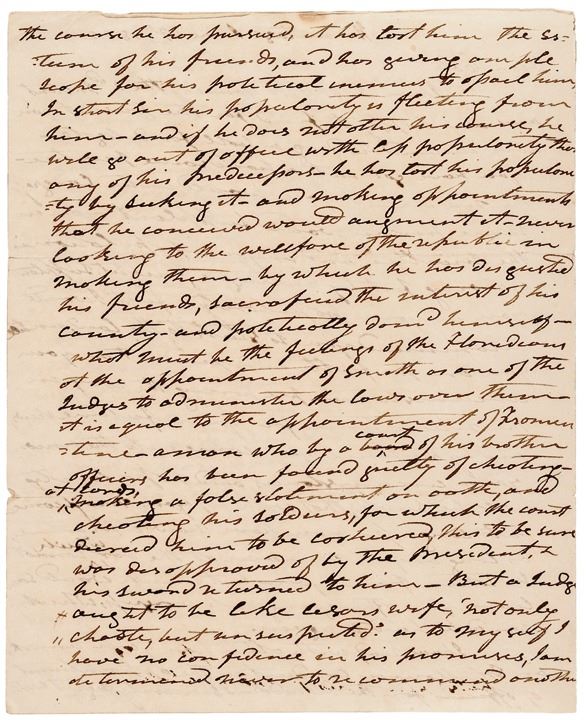 the course he has pursued, it has lost him the es-
-teem of his friends, and has giving ample
scope for his political enemies to assail him,
In short Sir his popularity is fleeting from
him – and if he does not alter his course, he
will go out of office with less popularity than
any of his Predecessors – he has lost his populari
-ty by seeking it – and making appointments
that he conceived would augment it – never
looking to the wellfare of the republic in
making them – by which he has disgusted
his friends, sacraficed the interest of his
country – and politically dam'd himself –
what must be the feelings of the Floridians
at the appointment of Smith as one of the
Judges to administer the laws over them –
it is equal to the appointment of Fromen
-tine – a man who by a court of his brother
officers has been found guilty of cheating –
at cards, making a false statement on oath, and
cheating his soldiers, for which the court
decreed him to be casheered, this to be sure
was disapproved of by the President, &
his sword returned to him – But a Judge
aught to be like cesars wife, "not only
"chaste, but unsuspected." as to myself I
have no confidence in his promises, I am
determined never to recommend another